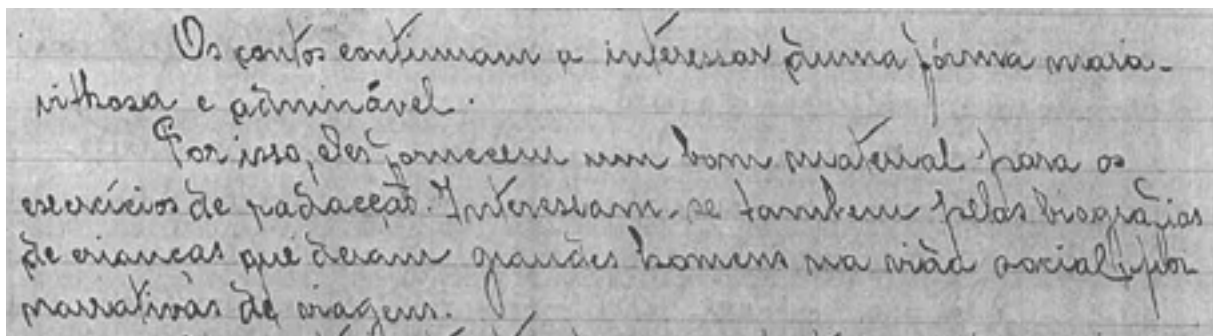 Os contos continuam a interessar duma fórma mara-
vilhosa e admirável.
Por isso, eles fornecem um bom material para os
exercícios de redacção. Interessam-se tambem pelas biografias
de crianças que deram grandes homens na vida social e por
narrativas de viagens.